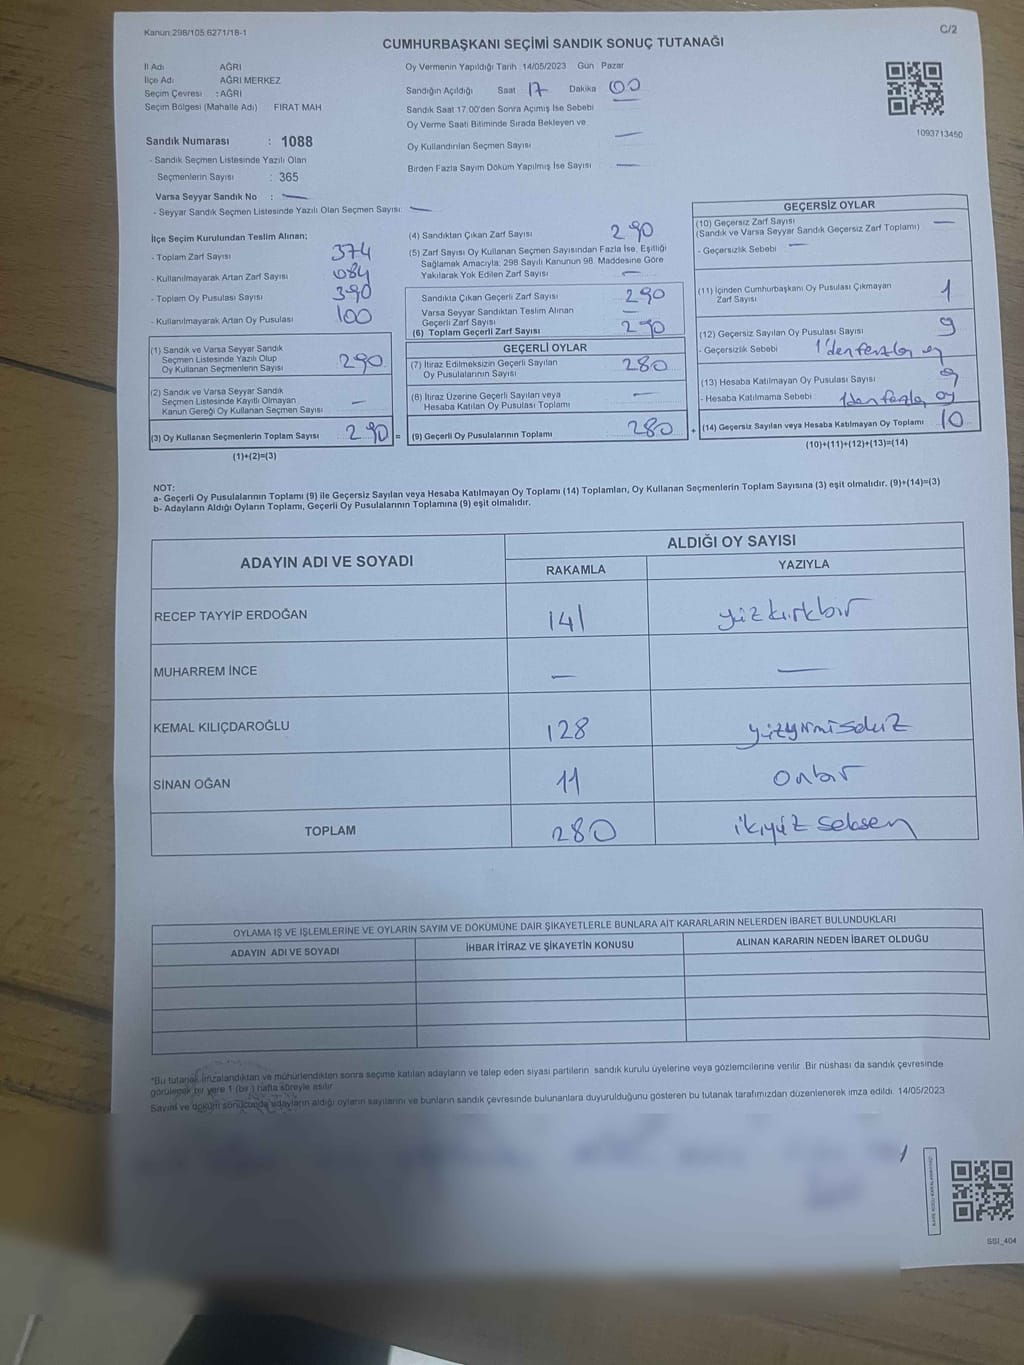 Kanun:298/105,6271/18-1
C/2
CUMHURBAŞKANI SEÇİMİ SANDIK SONUÇ TUTANAĞI
İl Adı AĞRI
İlçe Adı AĞRI MERKEZ
Seçim Çevresi : AĞRI
Seçim Bölgesi (Mahalle Adı) FIRAT MAH
Sandık Numarası : 1088
- Sandık Seçmen Listesinde Yazılı Olan
Seçmenlerin Sayısı : 365
Varsa Seyyar Sandık No : —
- Seyyar Sandık Seçmen Listesinde Yazılı Olan Seçmen Sayısı: —
Oy Vermenin Yapıldığı Tarih :14/05/2023 Gün : Pazar
Sandığın Açıldığı Saat 17 Dakika 00
Sandık Saat 17.00'den Sonra Açımış İse Sebebi
Oy Verme Saati Bitiminde Sırada Bekleyen ve
Oy Kullandırılan Seçmen Sayısı —
Birden Fazla Sayım Döküm Yapılmış İse Sayısı —
1093713450
İlçe Seçim Kurulundan Teslim Alınan;
- Toplam Zarf Sayısı 374
- Kullanılmayarak Artan Zarf Sayısı 084
- Toplam Oy Pusulası Sayısı 390
- Kullanılmayarak Artan Oy Pusulası 100
(1) Sandık ve Varsa Seyyar Sandık
Seçmen Listesinde Yazılı Olup
Oy Kullanan Seçmenlerin Sayısı 290
(2) Sandık ve Varsa Seyyar Sandık
Seçmen Listesinde Kayıtlı Olmayan
Kanun Gereği Oy Kullanan Seçmen Sayısı —
(3) Oy Kullanan Seçmenlerin Toplam Sayısı 290 =
(1)+(2)=(3)
(4) Sandıktan Çıkan Zarf Sayısı 290
(5) Zarf Sayısı Oy Kullanan Seçmen Sayısından Fazla İse, Eşitliği
Sağlamak Amacıyla, 298 Sayılı Kanunun 98. Maddesine Göre
Yakılarak Yok Edilen Zarf Sayısı —
Sandıkta Çıkan Geçerli Zarf Sayısı 290
Varsa Seyyar Sandıktan Teslim Alınan
Geçerli Zarf Sayısı —
(6) Toplam Geçerli Zarf Sayısı 290
GEÇERLİ OYLAR
(7) İtiraz Edilmeksizin Geçerli Sayılan
Oy Pusulalarının Sayısı 280
(8) İtiraz Üzerine Geçerli Sayılan veya
Hesaba Katılan Oy Pusulası Toplamı —
(9) Geçerli Oy Pusulalarının Toplamı 280 +
GEÇERSİZ OYLAR
(10) Geçersiz Zarf Sayısı —
(Sandık ve Varsa Seyyar Sandık Geçersiz Zarf Toplamı)
- Geçersizlik Sebebi —
(11) İçinden Cumhurbaşkanı Oy Pusulası Çıkmayan
Zarf Sayısı 1
(12) Geçersiz Sayılan Oy Pusulası Sayısı 9
- Geçersizlik Sebebi 1'den fazla oy
(13) Hesaba Katılmayan Oy Pusulası Sayısı 9
- Hesaba Katılmama Sebebi 1den fazla oy
(14) Geçersiz Sayılan veya Hesaba Katılmayan Oy Toplamı 10
(10)+(11)+(12)+(13)=(14)
NOT:
a- Geçerli Oy Pusulalarının Toplamı (9) ile Geçersiz Sayılan veya Hesaba Katılmayan Oy Toplamı (14) Toplamları, Oy Kullanan Seçmenlerin Toplam Sayısına (3) eşit olmalıdır. (9)+(14)=(3)
b- Adayların Aldığı Oyların Toplamı, Geçerli Oy Pusulalarının Toplamına (9) eşit olmalıdır.
ADAYIN ADI VE SOYADI ALDIĞI OY SAYISI
RAKAMLA YAZIYLA
RECEP TAYYİP ERDOĞAN 141 yüzkırkbir
MUHARREM İNCE — —
KEMAL KILIÇDAROĞLU 128 yüzyirmisekiz
SİNAN OĞAN 11 onbir
TOPLAM 280 ikiyüz seksen
OYLAMA İŞ VE İŞLEMLERİNE VE OYLARIN SAYIM VE DÖKÜMÜNE DAİR ŞİKAYETLERLE BUNLARA AİT KARARLARIN NELERDEN İBARET BULUNDUKLARI
ADAYIN ADI VE SOYADI İHBAR İTİRAZ VE ŞİKAYETİN KONUSU ALINAN KARARIN NEDEN İBARET OLDUĞU
*Bu tutanak imzalandıktan ve mühürlendikten sonra seçime katılan adayların ve talep eden siyasi partilerin sandık kurulu üyelerine veya gözlemcilerine verilir. Bir nüshası da sandık çevresinde
görülecek bir yere 1 (bir ) hafta süreyle asılır.
Sayım ve döküm sonucunda adayların aldığı oyların sayılarını ve bunların sandık çevresinde bulunanlara duyurulduğunu gösteren bu tutanak tarafımızdan düzenlenerek imza edildi. 14/05/2023
SSI_404